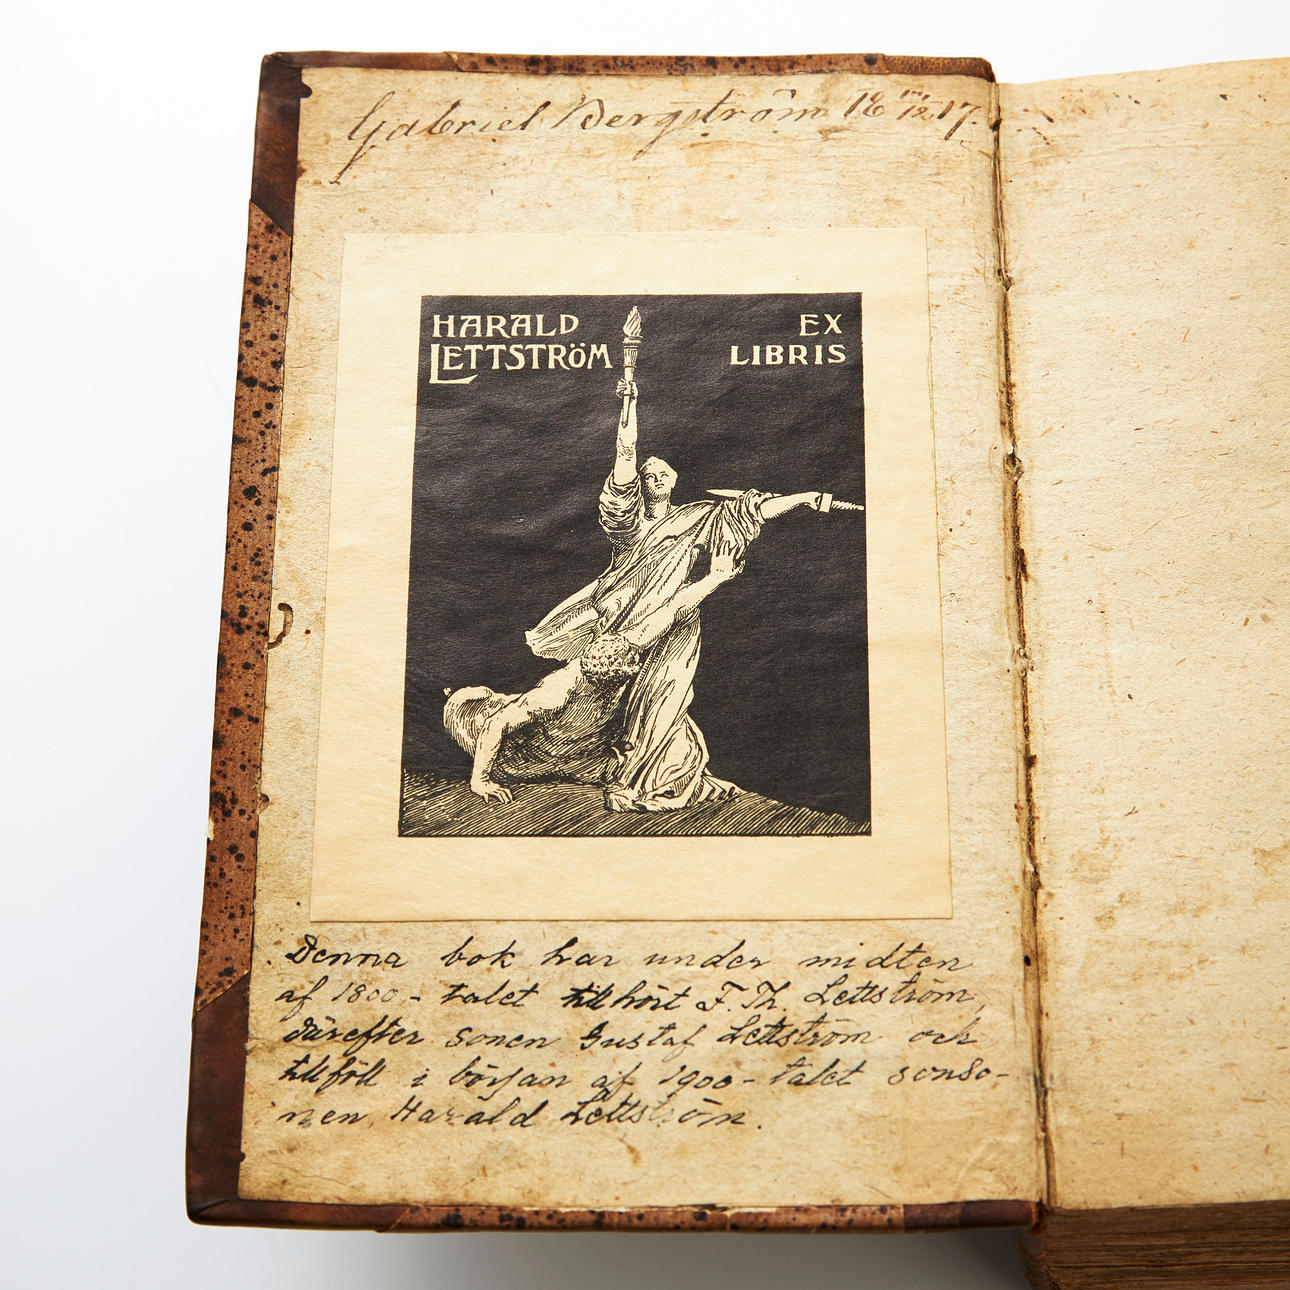 Gabriel Bergström 18 12 17.
HARALD
LETTSTRÖM
EX
LIBRIS
Denna bok har under midten
af 1800-talet tillhört F. Th. Lettström,
därefter sonen Gustaf Lettström och
tillföll i början af 1900-talet sonso-
nen Harald Lettström.